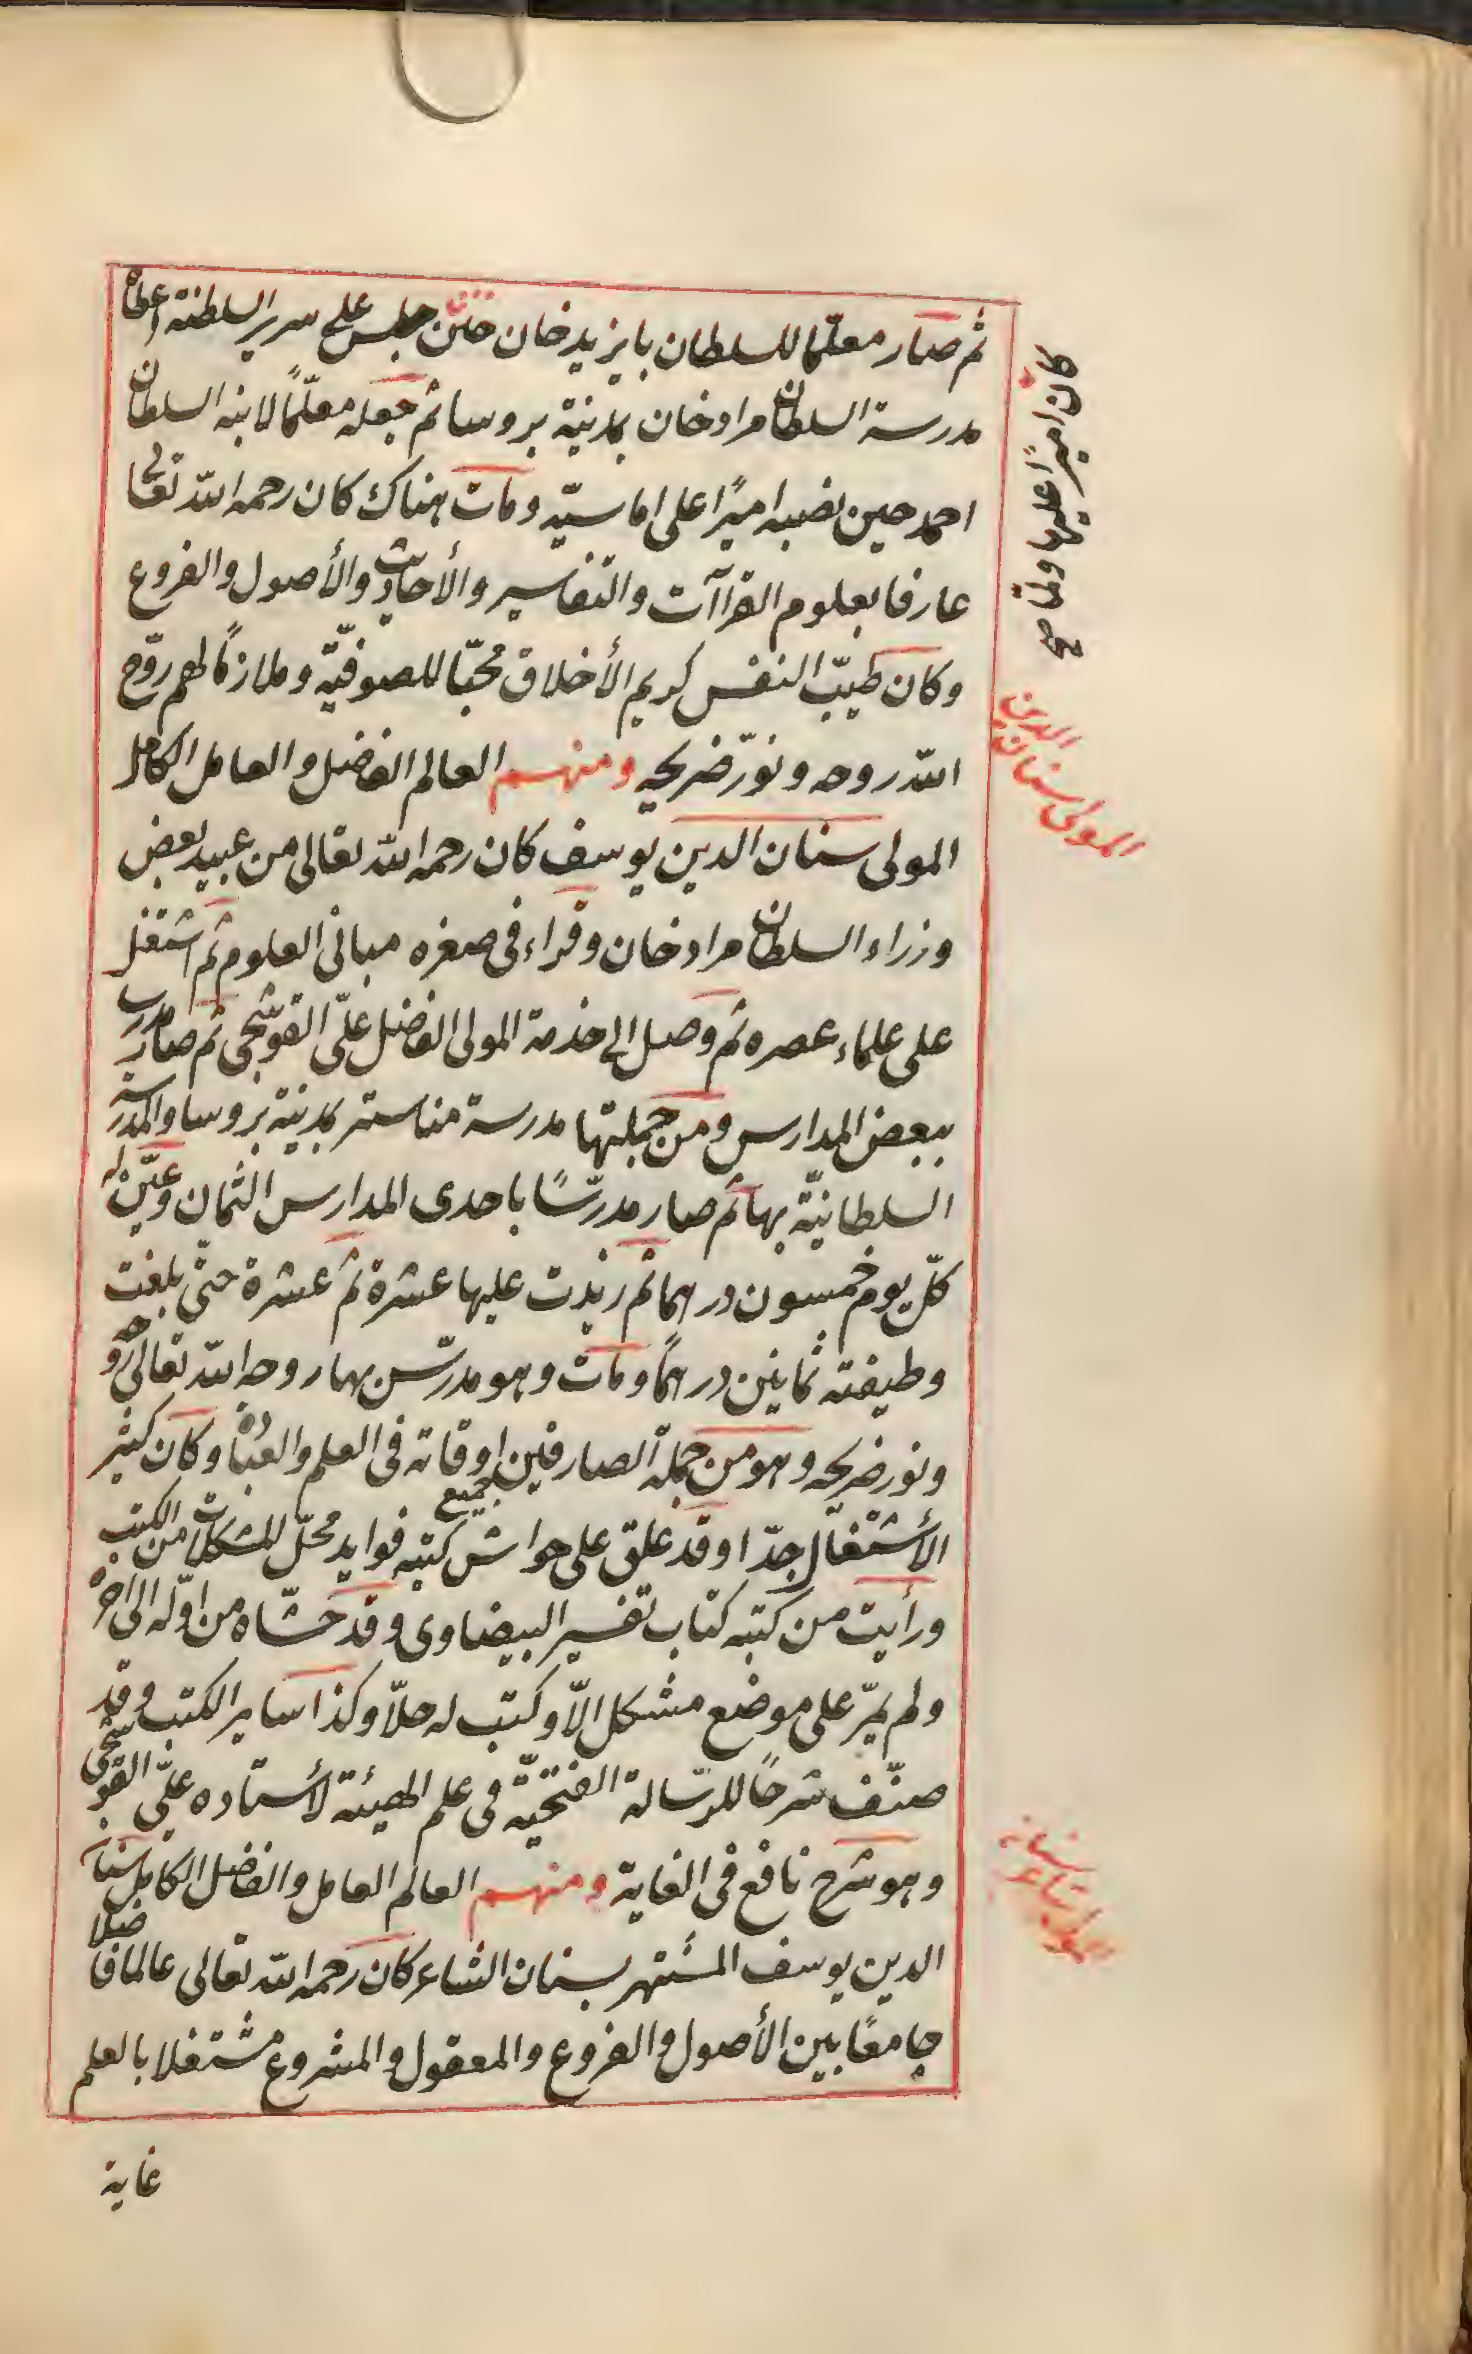 ثم صار معلّما للسلطان بايزيد خان حين جلس على سرير السلطنة اعطاه
كان اميرًا عليها ولما صح
مدرسة السلطان مراد خان بمدينة بروسا ثم جعله معلّمًا لابنه السلطان
احمد حين نصبه اميرًا على اماسيّه ومات هناك كان رحمه الله تعالى
عارفا بعلوم القراآت والتفاسير والأحاديث والأصول والفروع
وكان طيّب النفس كريم الأخلاق محبّا للصوفيّه وملازمًا لهم روّح
الله روحه ونوّر ضريحه ومنهم العالم الفاضل والعامل الكامل
المولى سنان الدين
المولى سنان الدين يوسف كان رحمه الله تعالى من عبيد بعض
وزراء السلطان مراد خان وقراء فى صغره مبانى العلوم ثم اشتغل
على علماء عصره ثم وصل الى خدمة المولى الفاضل علىّ القوشجى ثم صار مدرسا
ببعض المدارس ومن جملتها مدرسة مناستر بمدينة بروسا والمدرسة
السلطانيّة بها ثم صار مدرّسًا باحدى المدارس الثمان وعيّن له
كلّ يوم خمسون درهما ثم زيدت عليها عشرة ثم عشرة حتّى بلغت
وظيفته ثمانين درهمًا ومات وهو مدرّس بها روحه الله تعالى روحه
ونور ضريحه وهو من جملة الصارفين اوقاته فى العلم والعبادة وكان كثير
الأشتغال جدّا وقد علق على حواش جميع كتبه فوايد محلّ المشكلات من الكتب
ورأيت من كتبه كتاب تفسير البيضاوى وقد حشّاه من اوّله الى اخره
ولم يمرّ على موضع مشكل الّا وكتب له حلّا وكذا ساير الكتب وقد
صنّف شرحًا للرّسالة الفتحيّة فى علم الهيئة لأستاده علىّ القوشجى
وهو شرح نافع فى الغاية ومنهم العالم العامل والفاضل الكامل سنان
الدين يوسف المشتهر بسنان الشاعر كان رحمه الله تعالى عالما فاضلا
جامعًا بين الأصول والفروع والمعقول والمشروع مشتغلا بالعلم
غاية